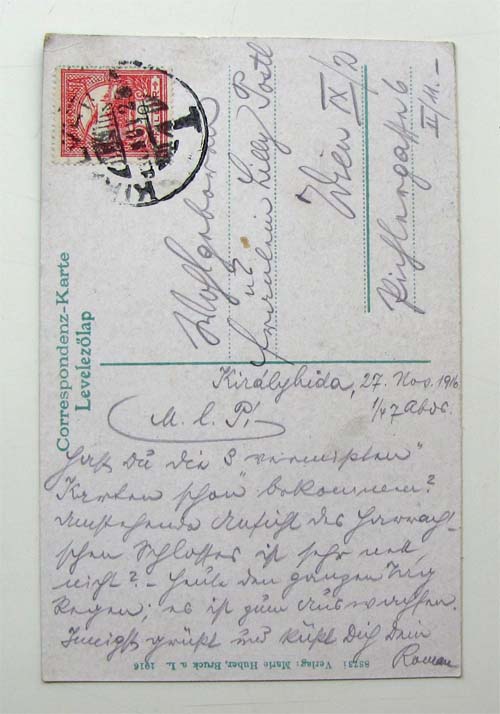 Correspondenz-Karte
Levelezőlap
Wohlgeboren
Fräulein Lilly Postl
Wien IX/2
II/11.-
Királyhida, 27. Nov. 1916
1/47 Abds.
M. l. P.!
Hast Du die 3 „vermißten"
Karten schon bekommen?
Umstehende Ansicht des Harrach-
schen Schlosses ist sehr nett,
nicht? - Heute den ganzen Tag
Regen; es ist zum Auswachsen.
Innigst grüßt und küßt Dich Dein
Roman
88731 Verlag: Marie Huber, Bruck a. L. 1916